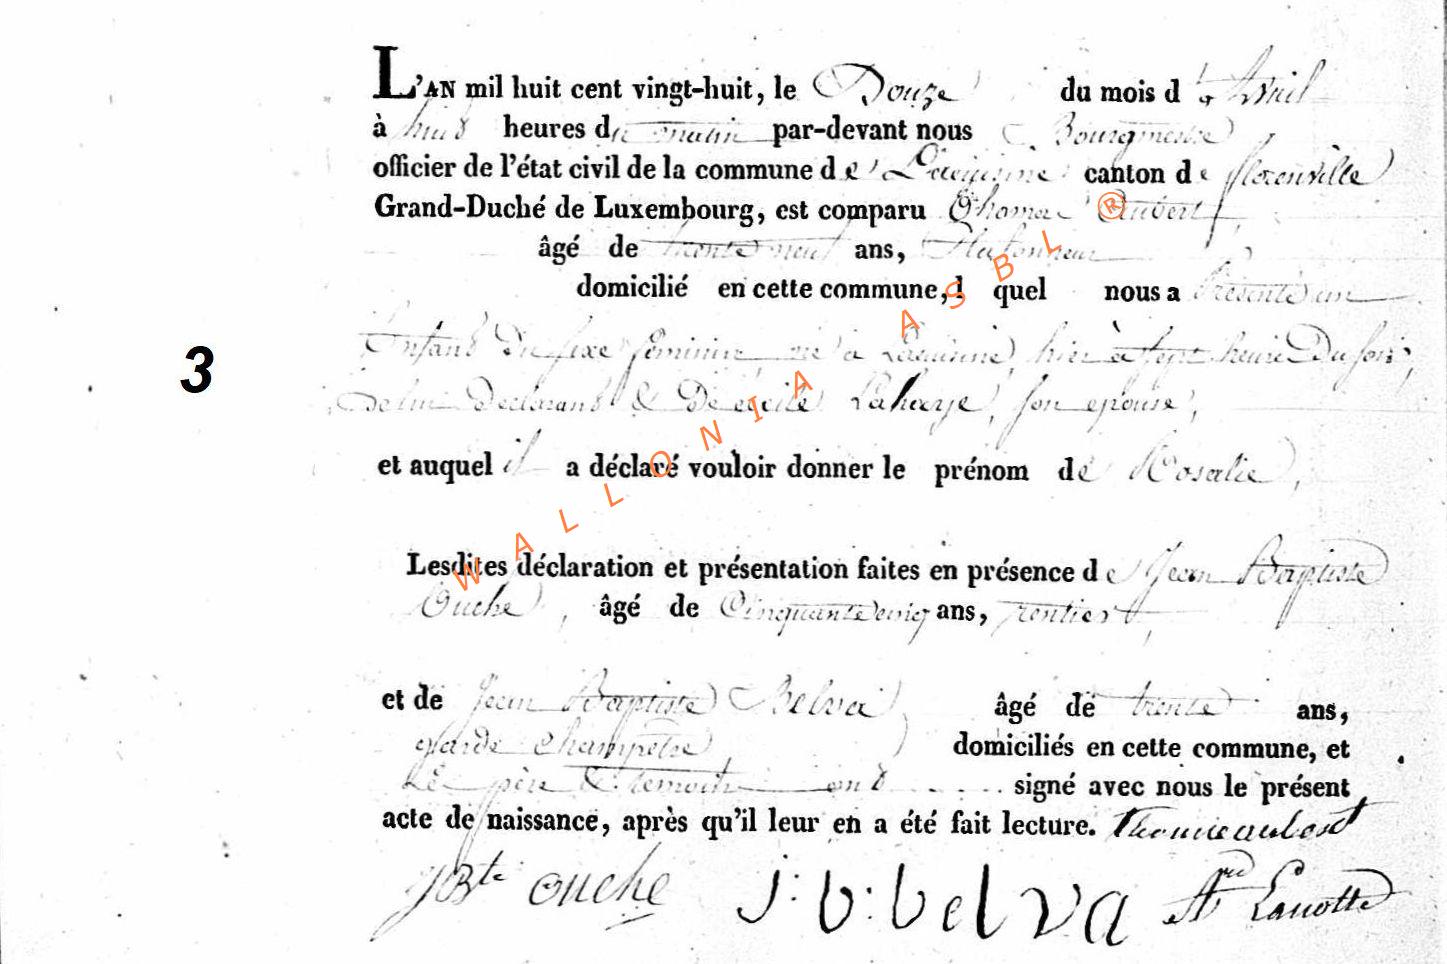 L'AN mil huit cent vingt-huit, le Douze du mois d'Avril
à huit heures du matin par-devant nous Bourgmestre
officier de l'état civil de la commune de canton de florenville
Grand-Duché de Luxembourg, est comparu Thomas Aubert,
âgé de trente neuf ans, Plafonneur
domicilié en cette commune, l quel nous a Présenté un
3
Enfant du sexe féminin, né à hier à sept heure Du soir,
de lui Déclarant & De Cécile Laharge, son epouse,
et auquel il a déclaré vouloir donner le prénom de Rosalie,
Lesdites déclaration et présentation faites en présence de Jean Baptiste
Ouche, âgé de Cinquante cinq ans, rentier,
et de Jean Baptiste Belva, âgé de trente ans,
garde champetre domiciliés en cette commune, et
Le père & temoins ont signé avec nous le présent
acte de naissance, après qu'il leur en a été fait lecture. Thomas aubert
JBte ouche j:b:belva Lanotte
WALLONIA ASBL ®